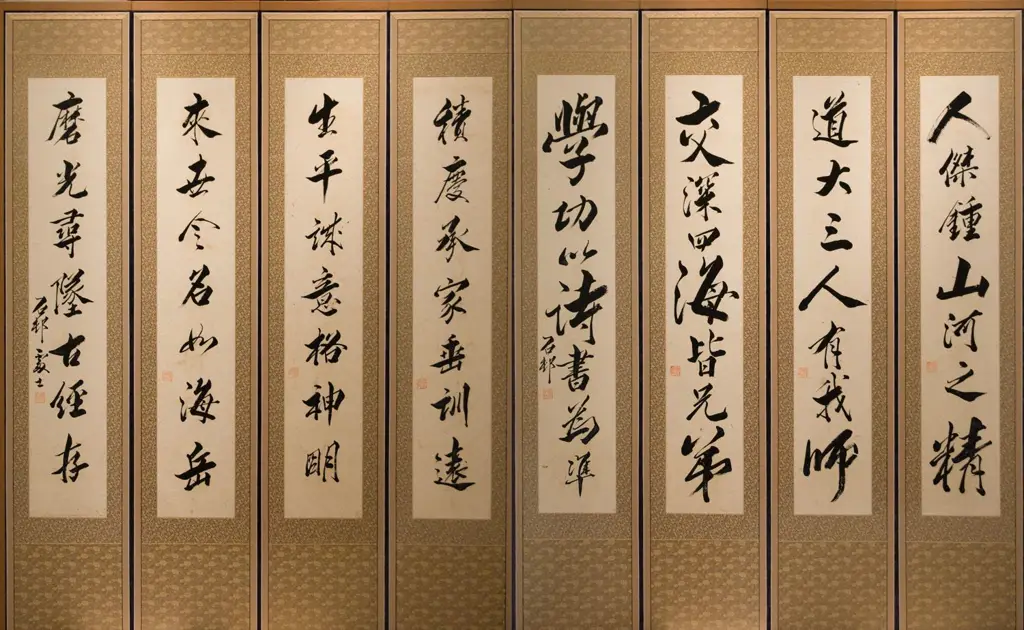 人傑鍾山河之精
道大三人有我師
交深四海皆兄弟
學功以詩書為準
石邨
積慶承家垂訓遠
生平誠意格神明
來世令名如海岳
磨光尋墜古經存
石邨處士